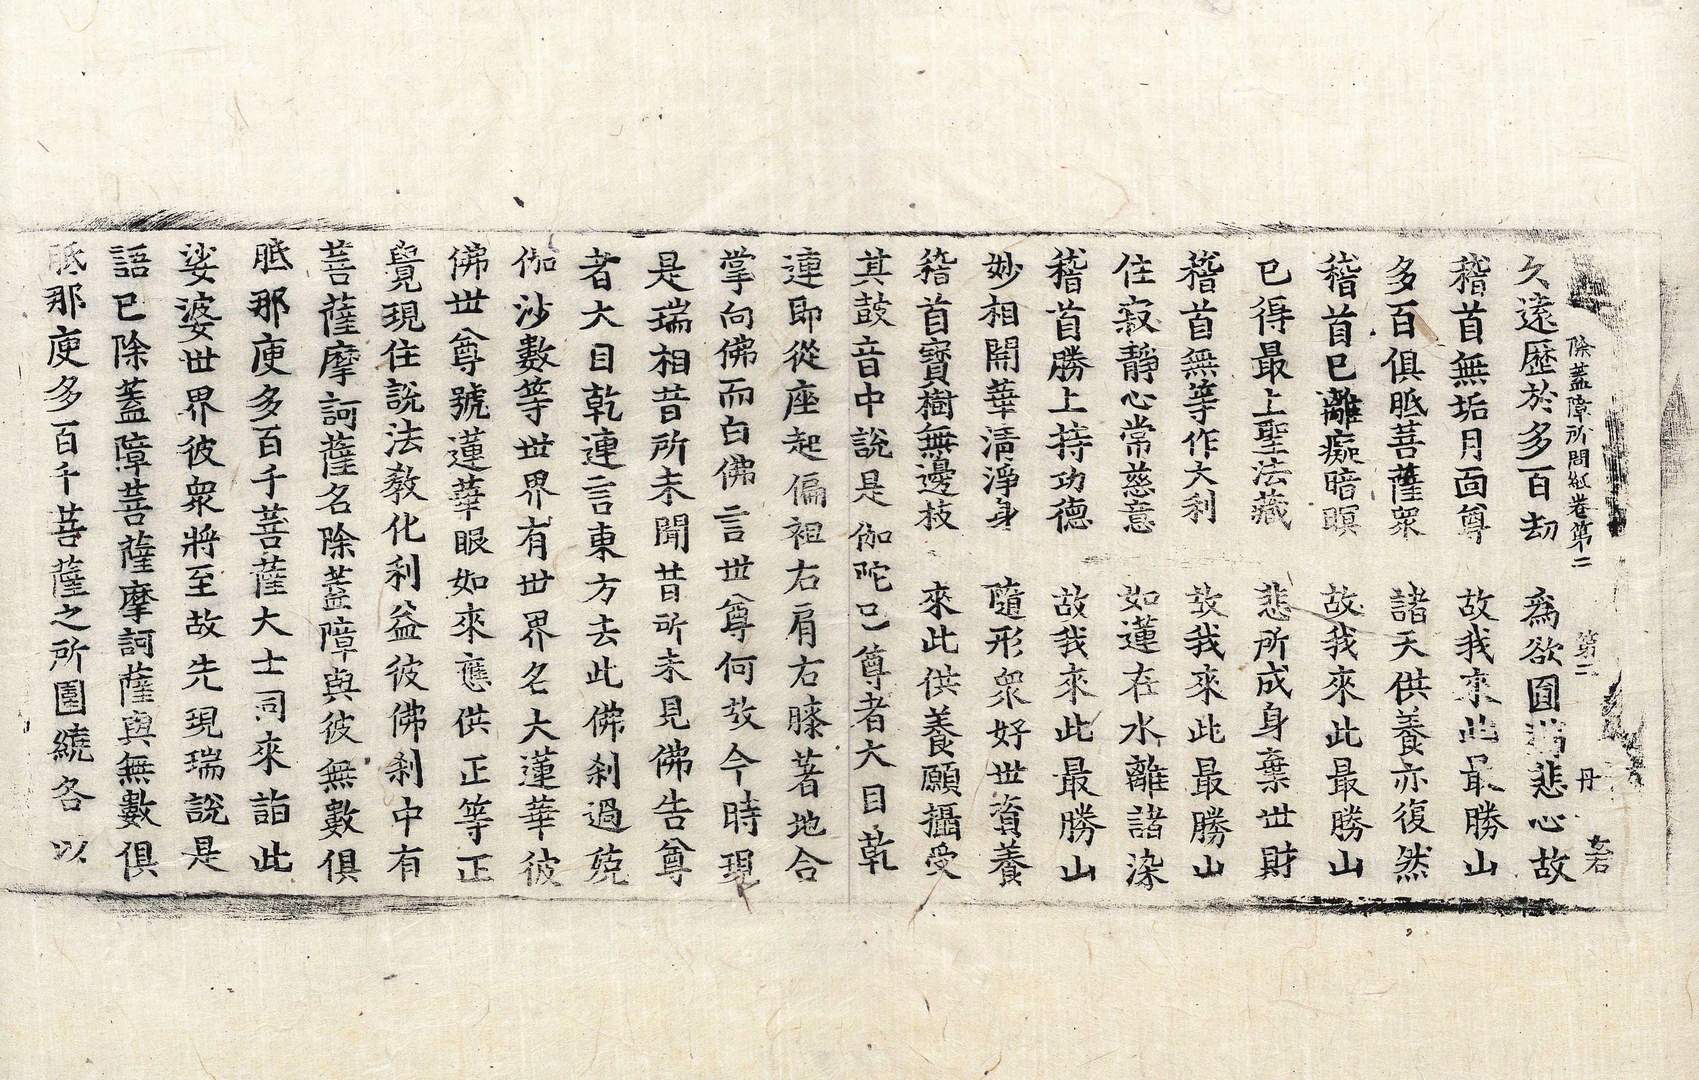 除蓋障所問經卷第二 第二 丹
久遠歷於多百劫 爲欲圓滿悲心故
稽首無垢月面尊 故我來此最勝山
多百俱胝菩薩衆 諸天供養亦復然
稽首已離癡暗暝 故我來此最勝山
已得最上聖法藏 悲所成身棄世財
稽首無等作大利 故我來此最勝山
住寂靜心常慈意 如蓮在水離諸染
稽首勝上持功德 故我來此最勝山
妙相開華淸淨身 隨形衆好世資養
稽首寶樹無邊枝 來此供養願攝受
其鼓音中說是伽陀已尊者大目乾
連即從座起偏袒右肩右膝著地合
掌向佛而白佛言世尊何故今時現
是瑞相昔所未聞昔所未見佛告尊
者大目乾連言東方去此佛刹過殑
伽沙數等世界有世界名大蓮華彼
佛世尊號蓮華眼如來應供正等正
覺現住說法教化利益彼佛刹中有
菩薩摩訶薩名除蓋障與彼無數俱
胝那庾多百千菩薩大士同來詣此
娑婆世界彼衆將至故先現瑞說是
語已除蓋障菩薩摩訶薩與無數俱
胝那庾多百千菩薩之所圍繞各以